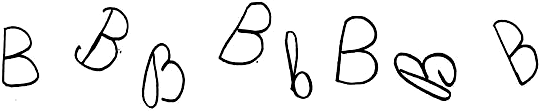 B B B B b B B B